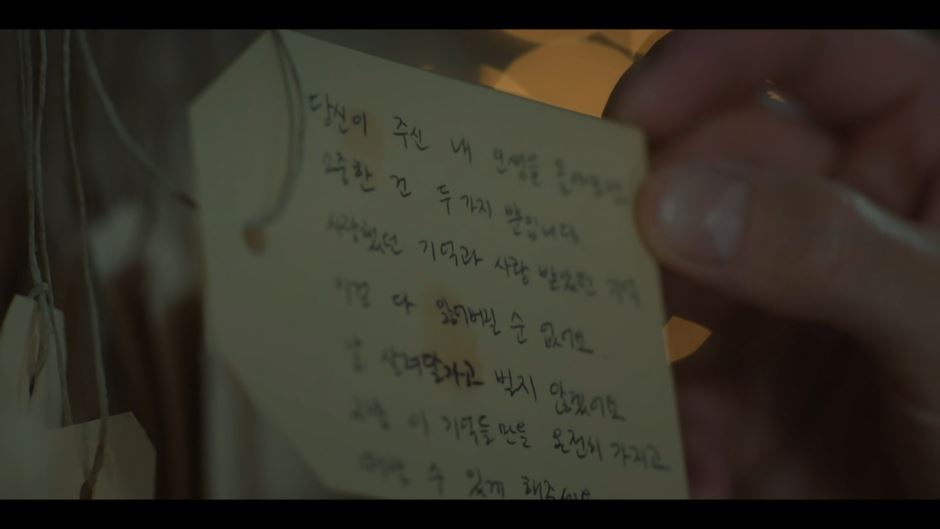 당신이 주신 내 인생을 돌아보면
소중한 건 두 가지 뿐입니다
사랑했던 기억과 사랑 받았던 기억
이걸 다 잃어버릴 순 없어요
살려달라고 빌지 않겠어요
그냥 이 기억들만을 온전히 가지고
수 있게 해주세요